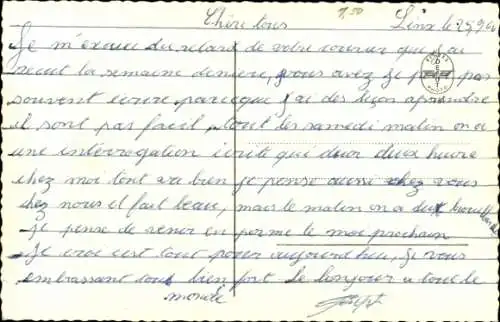 Chère tous 1,50 Linx le
Je m'excuse du retart de votre courrier que j'ai
recut la semaine derniere, vous avez je peut pas
souvent écrire parceque j'ai des leçon aprendre
il sont pas facil, tout les samedi matin on a
une interrogation écrite qui dur deux heure
chez moi tout va bien je pense aussi chez vous
chez nous il fait beau, mais le matin on a du brouillard
je pense de venir en perme le moi prochain
Je croi c'est tout pour aujourd'hui, Je vous
embrassant tous bien fort le bonjour a tout le
monde
Joseph